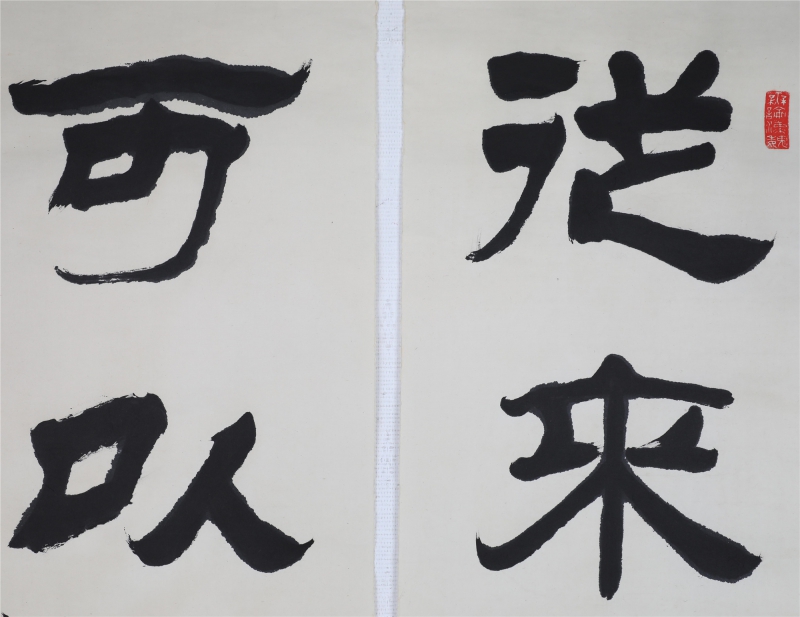 從來
可以